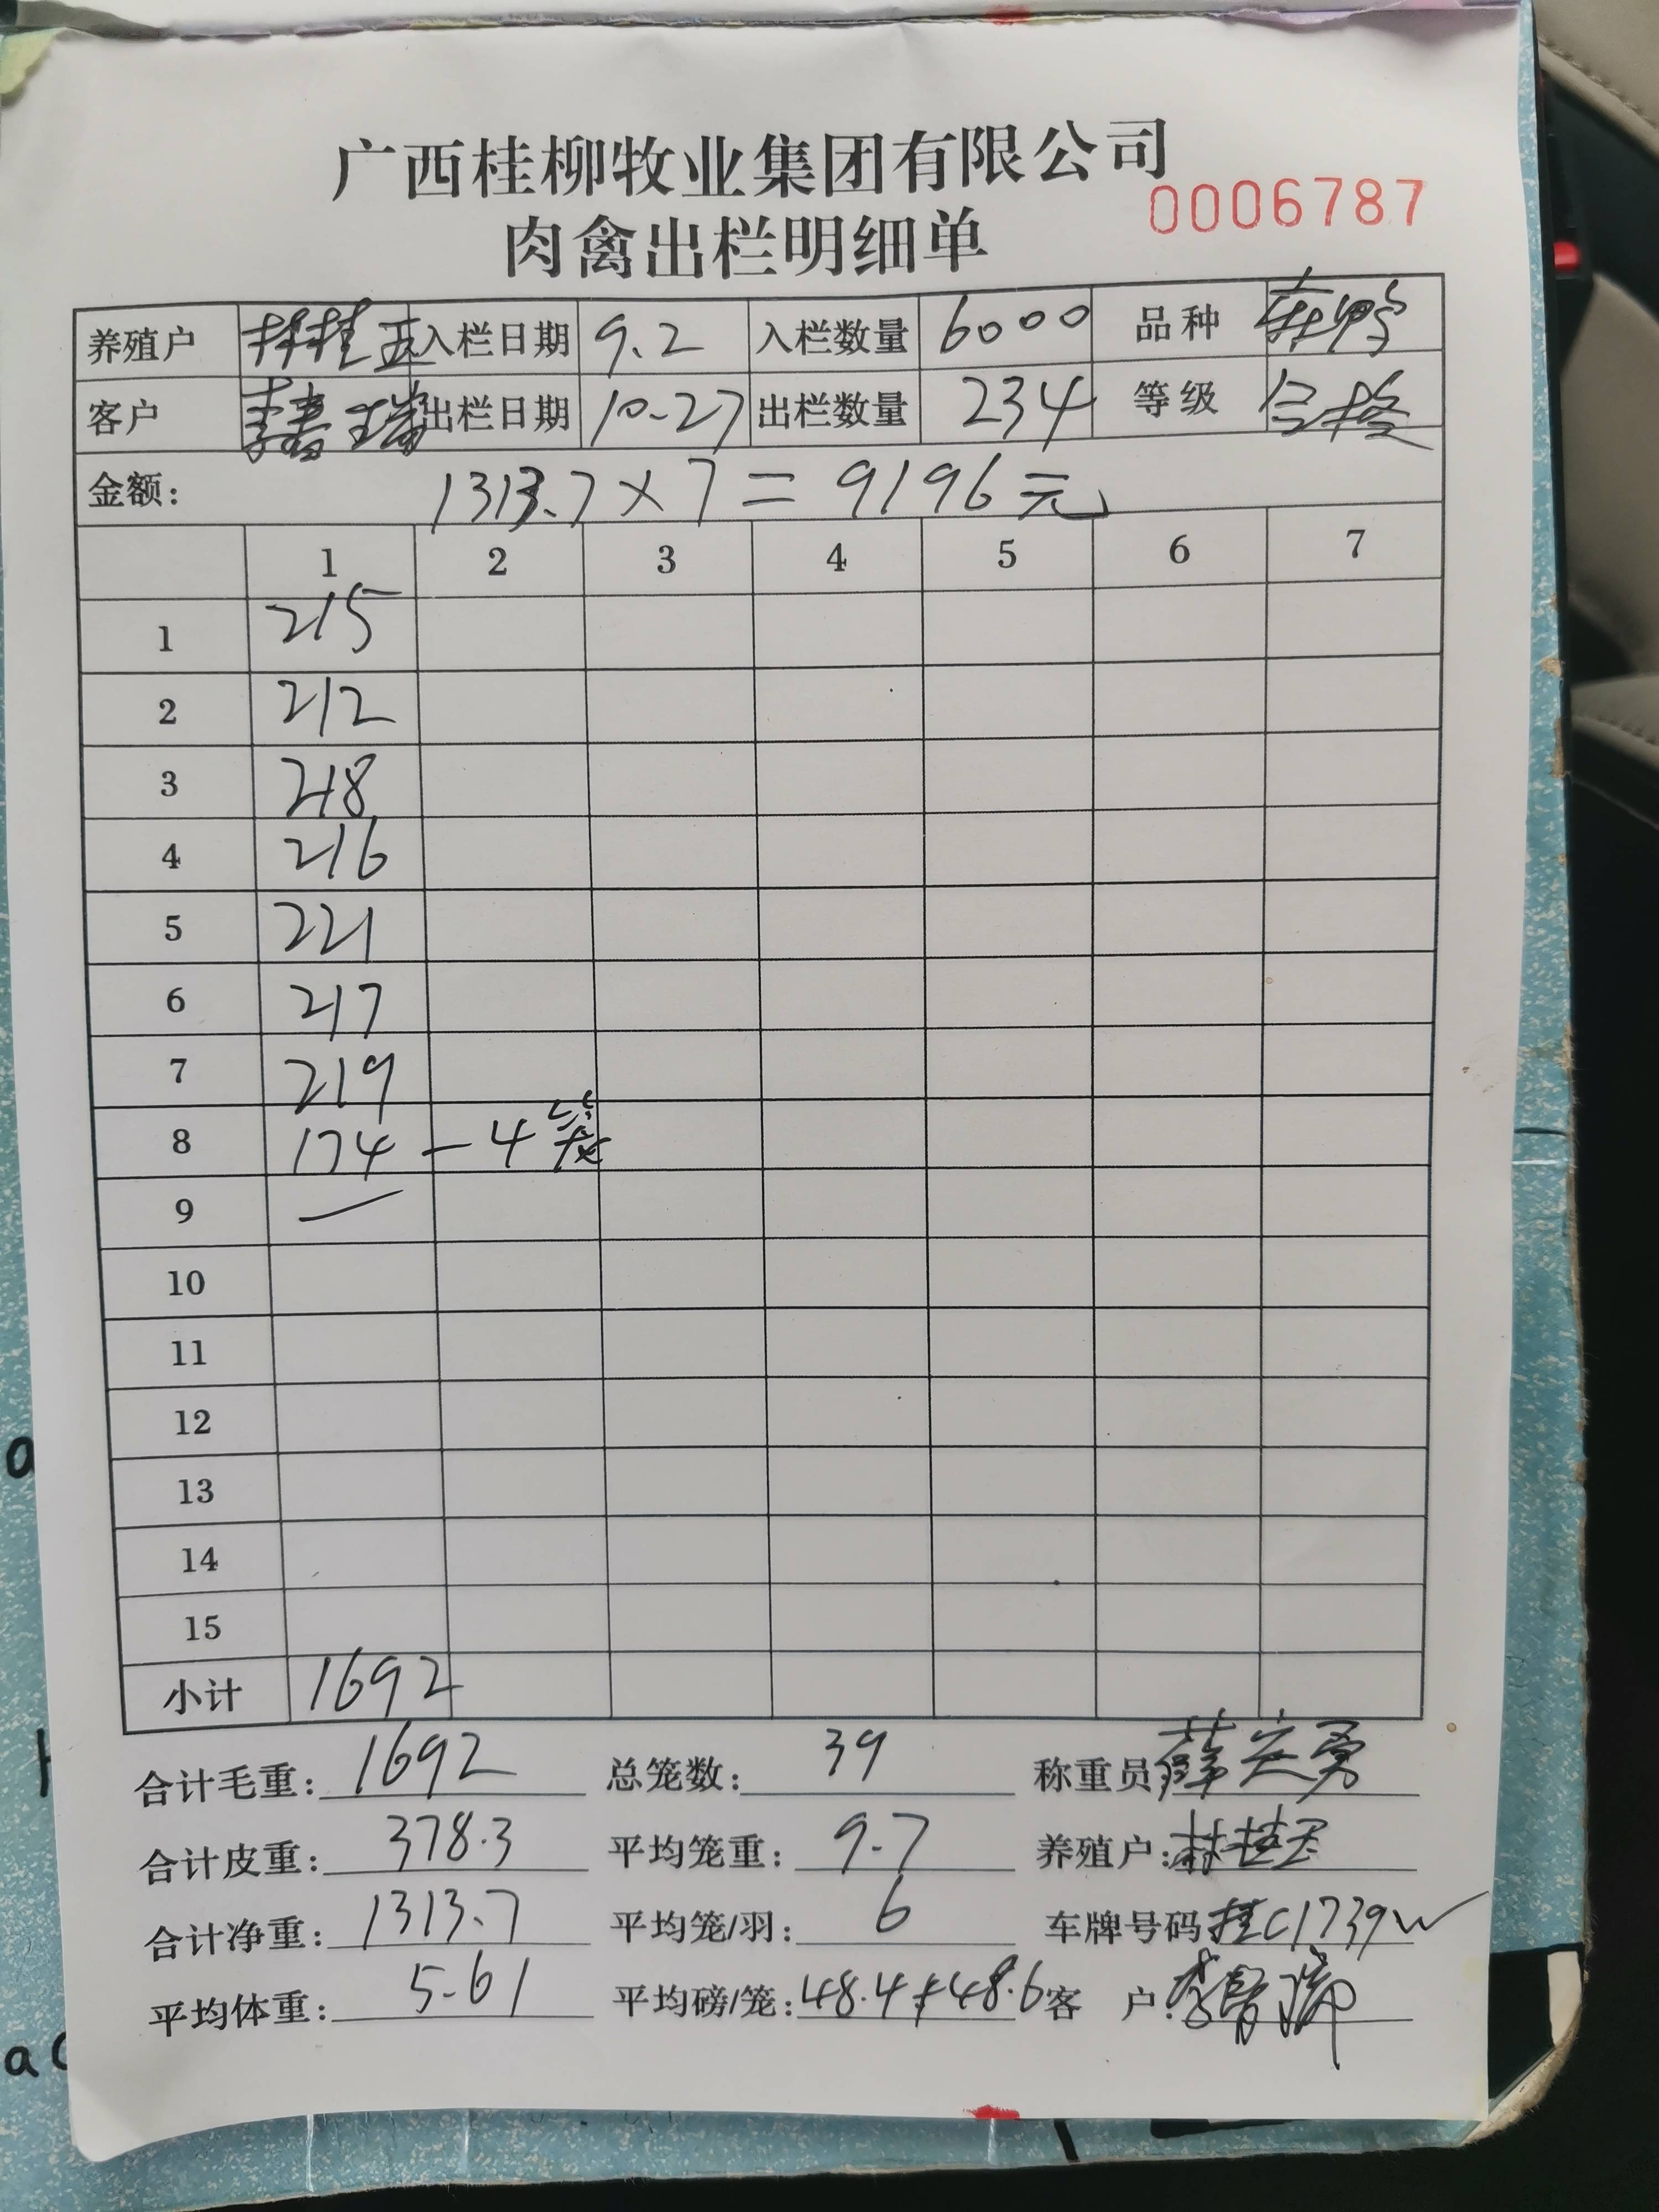 广西桂柳牧业集团有限公司
肉禽出栏明细单 0006787
养殖户 林桂 入栏日期 9.2 入栏数量 6000 品种
客户 李春瑞 出栏日期 10-27 出栏数量 234 等级 合格
金额: 1313.7×7=9196元
1 2 3 4 5 6 7
1 215
2 212
3 218
4 216
5 221
6 217
7 219
8 174 - 4笼
9 —
10
11
12
13
14
15
小计 1692
合计毛重: 1692 总笼数: 39 称重员 薛定勇
合计皮重: 378.3 平均笼重: 9.7 养殖户: 林桂
合计净重: 1313.7 平均笼/羽: 6 车牌号码 桂C1739W
平均体重: 5.61 平均磅/笼: 48.4 48.6 客户: